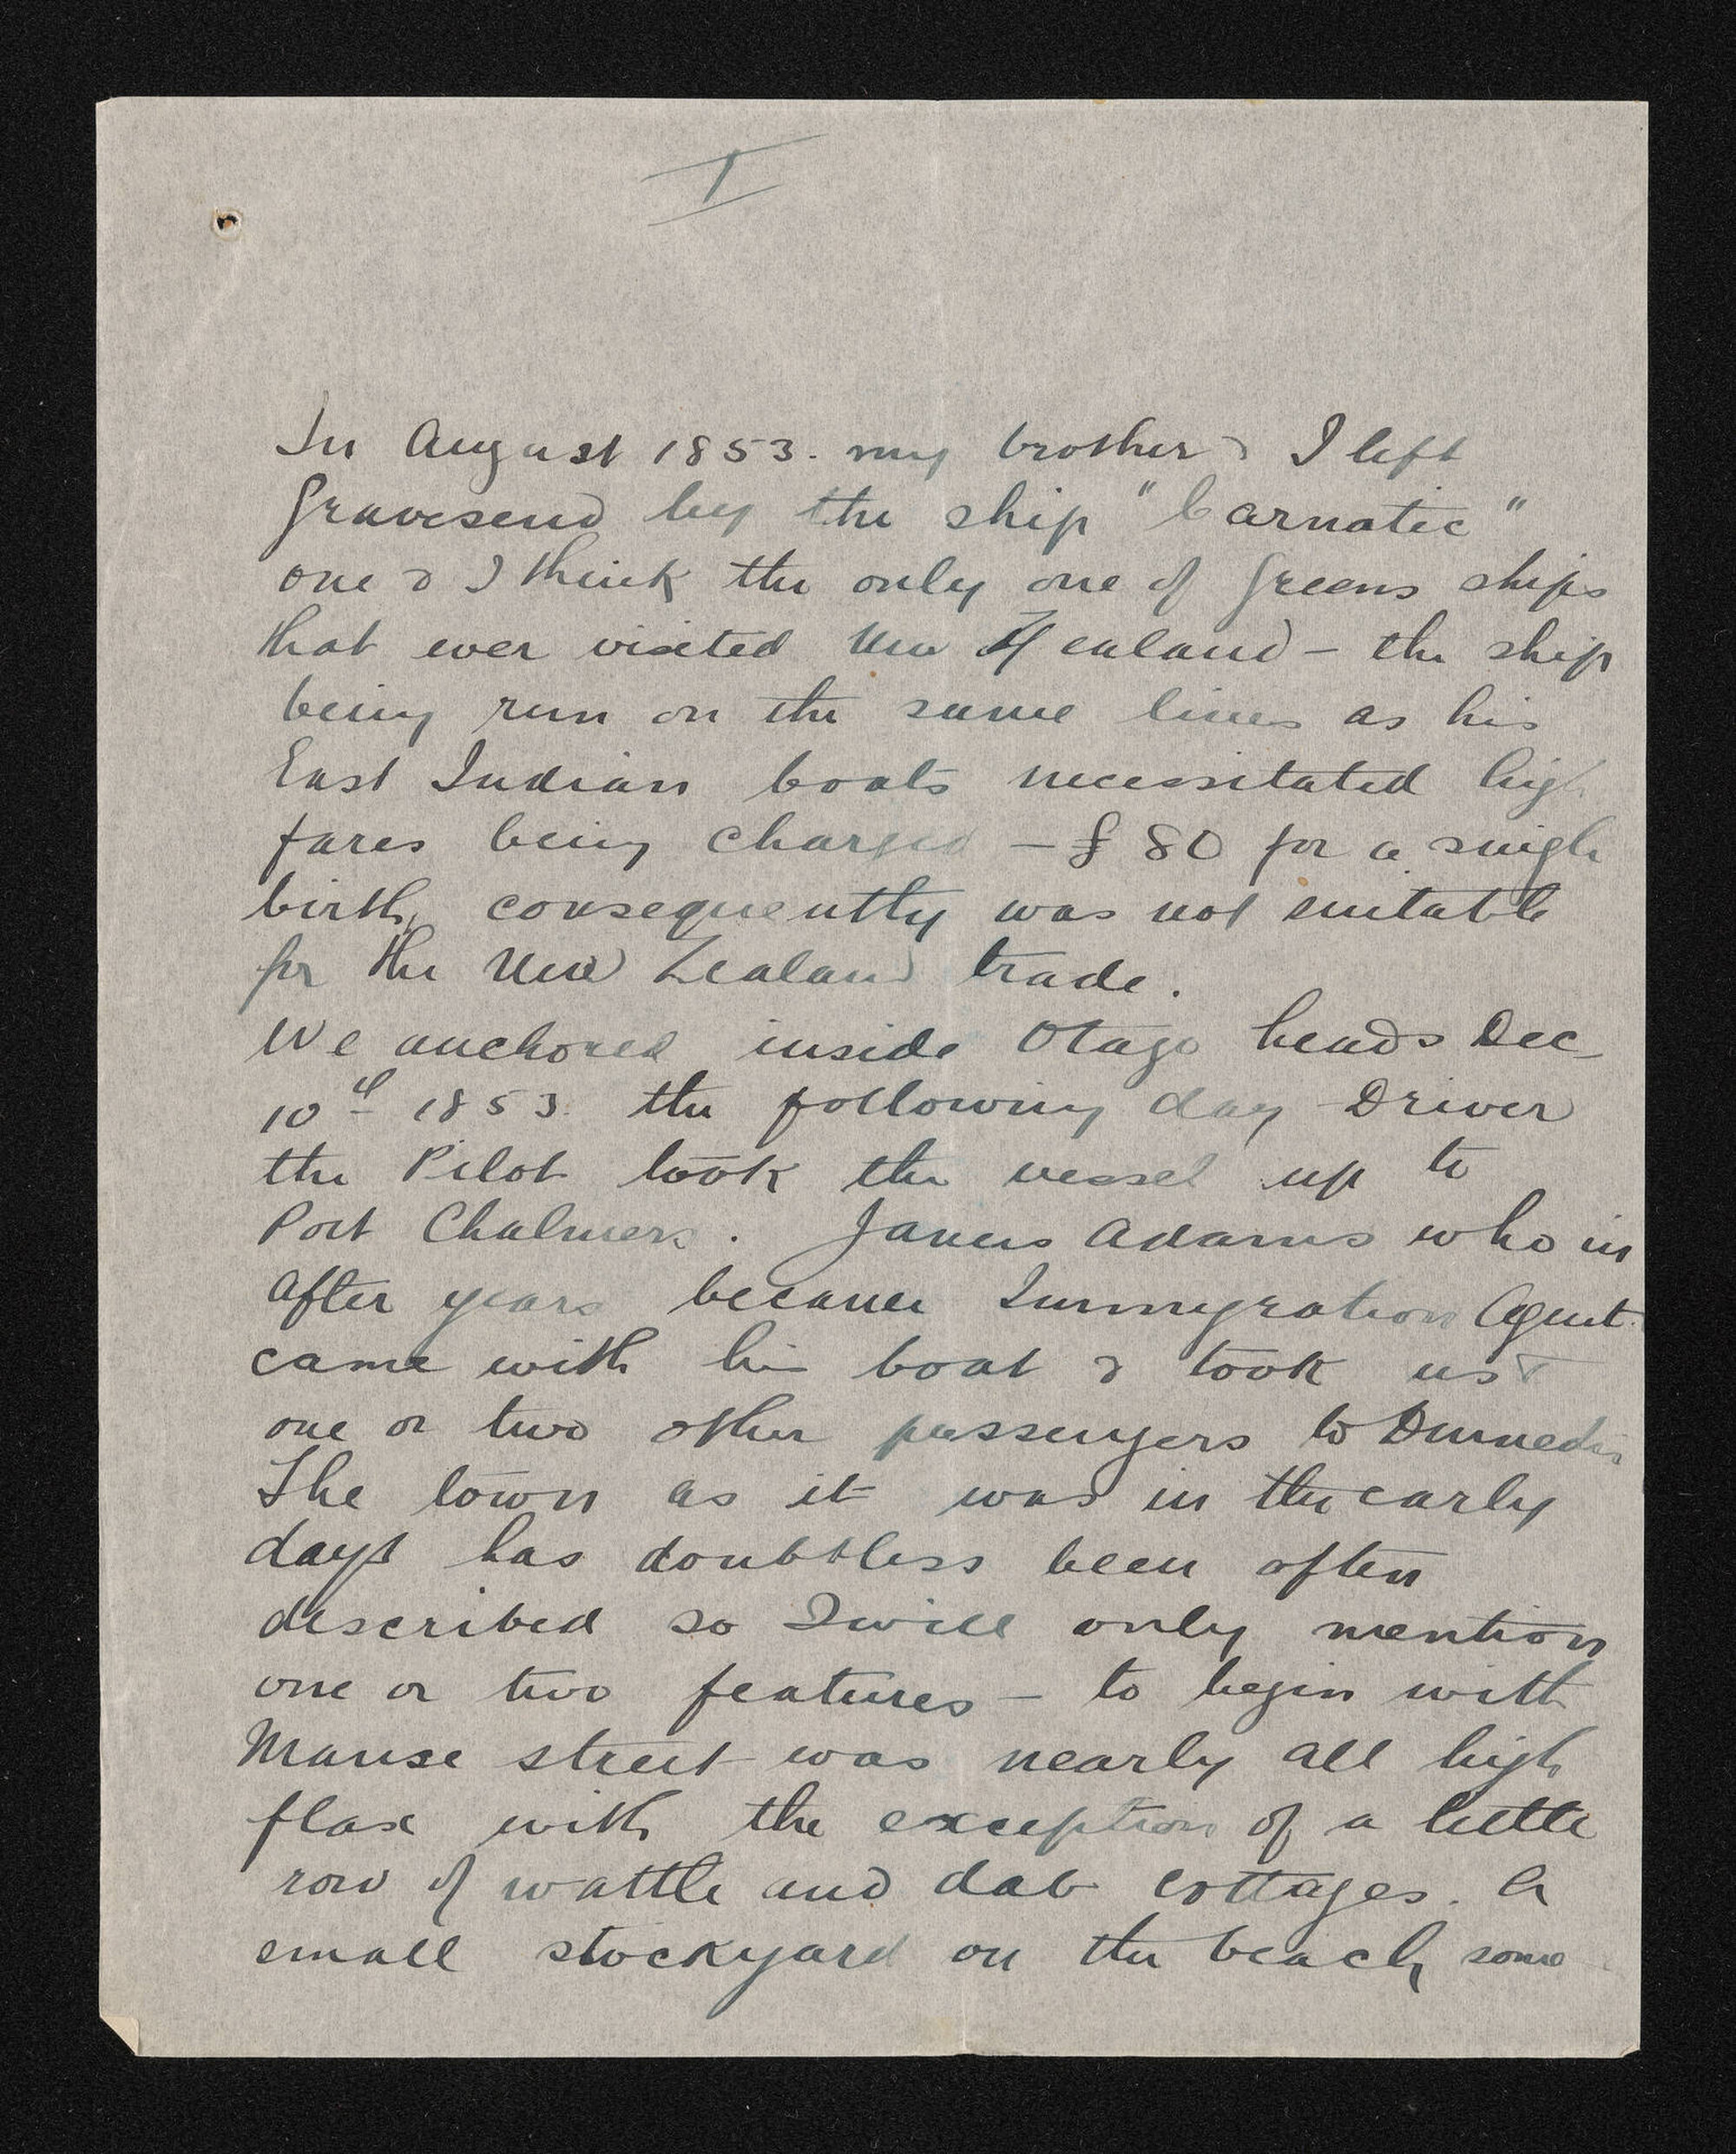 I
In August 1853. my brother & I left
Gravesend by the ship "Carnatic"
one & I think the only one of Greens ships
that ever visited New Zealand - the ship
being run on the same lines as his
East Indian boats necessitated high
fares being charged - £80 for a single
birth, consequently was not suitable
for the New Zealand trade.
We anchored inside Otago heads Dec
10th 1853. the following day Driver
the Pilot took the vessel up to
Port Chalmers. James Adams who in
after years became Immigration Agent.
came with his boat & took us &
one or two other passengers to Dunedin
The town as it was in the early
days has doubtless been often
described so I will only mention
one or two features - to begin with
Manse street was nearly all high
flax with the exception of a little
row of wattle and dab cottages. A
small stockyard on the beach, some